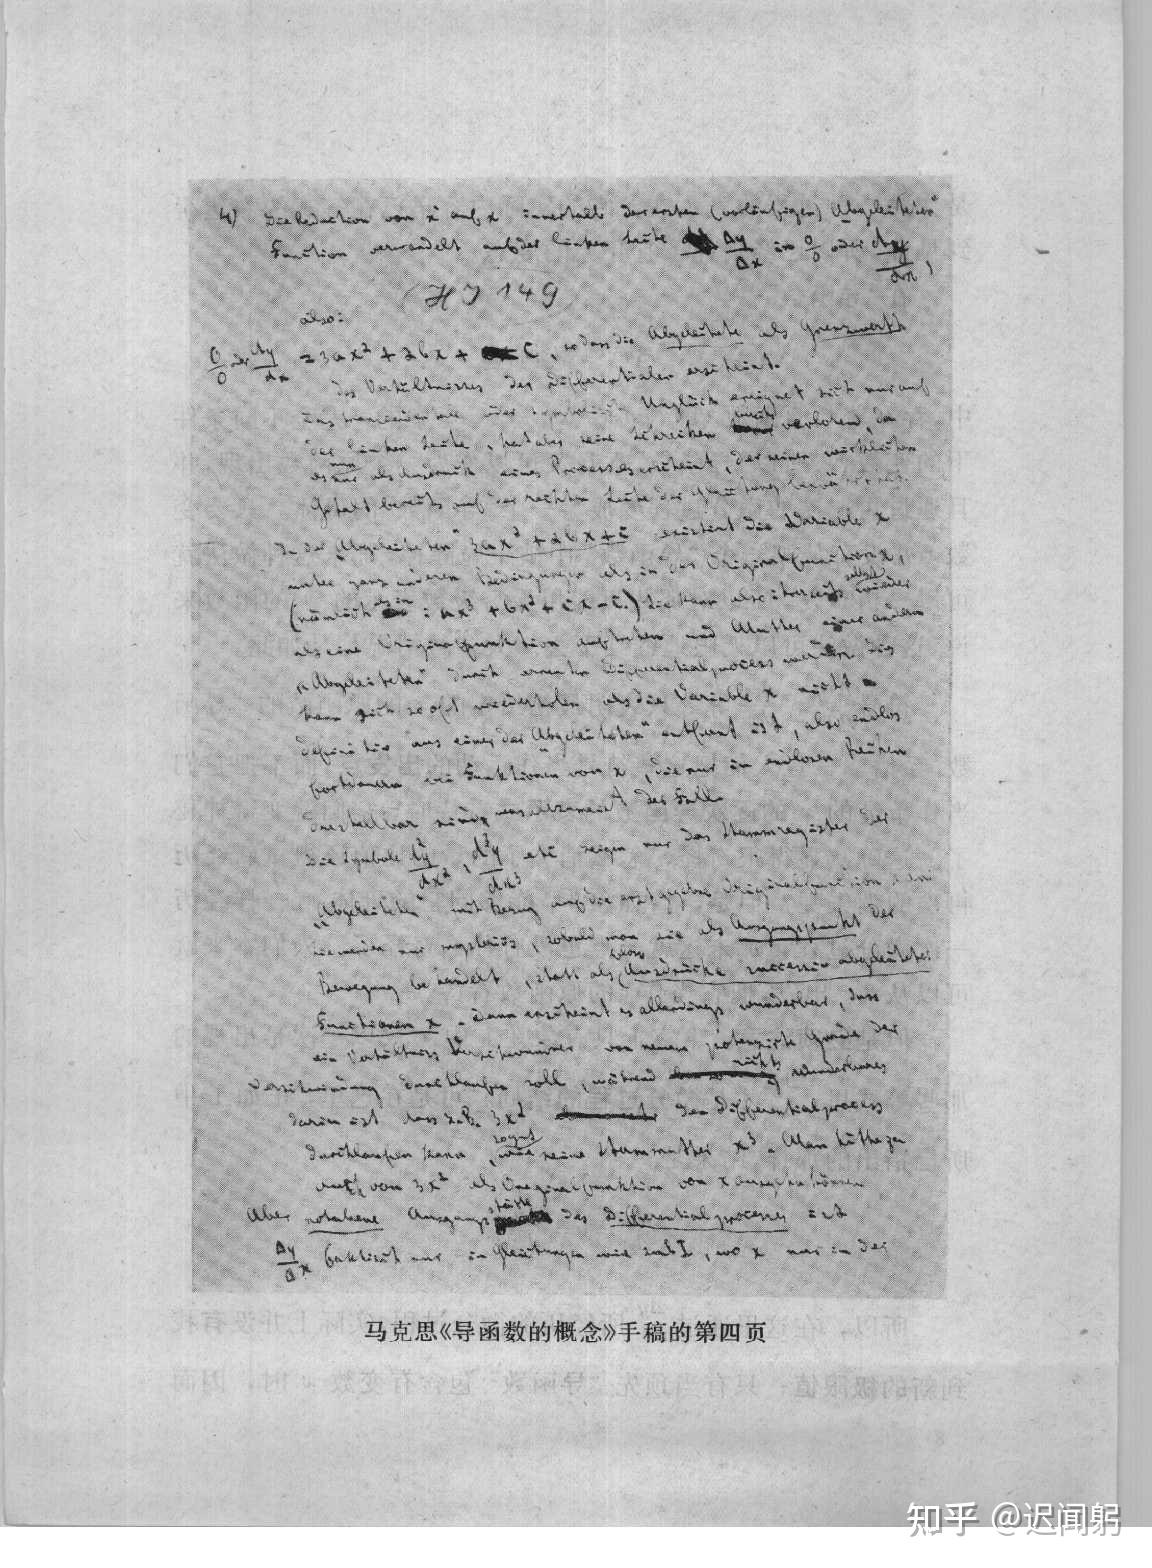 4) Die Reduction von x¹ auf x innerhalb der ersten (vorläufigen) „Abgeleiteten“
Function verwandelt auf der linken Seite Δy/Δx in 0/0 oder dy/dx,
(HJ 149)
also:
0/0 oder dy/dx = 3ax² + 2bx + c, so dass die Abgeleitete als Grenzwerth
des Verhältnisses der Differentialen erscheint.
Das transcendentale oder symbolische Unglück ereignet sich nur auf
der linken Seite, hat aber seine Schrecken bereits verloren, da
es nun nur als Ausdruck eines Processes erscheint, der seinen wirklichen
Gehalt bereits auf der rechten Seite der Gleichung bewährt hat.
In der „Abgeleiteten“ 3ax² + 2bx + c existirt die Variable x
unter ganz anderen Bedingungen als in der Originalfunction x,
(nämlich als in : ax³ + bx² + cx - e.) Sie kann also ihrerseits selbst wieder
als eine Originalfunktion auftreten und Mutter einer andern
„Abgeleiteten“ durch erneuten Differentialprocess werden. Dies
kann sich so oft wiederholen als die Variable x nicht
definitiv aus einer der „Abgeleiteten“ entfernt ist, also endlos
fortdauern bei Funktionen von x, die nur in endlosen Reihen
darstellbar sind, was allzumeist der Fall.
Die Symbole d²y/dx², d³y/dx³ etc zeigen nur das Stammregister der
„Abgeleiteten“ mit Bezug auf die erst gegebne Originalfunction
Sie werden nur mysteriös, sobald man sie als Ausgangspunkt der
Bewegung behandelt, statt als bloss Ausdrücke successiv abgeleiteter
Functionen x. Dann erscheint es allerdings wunderbar, dass
ein Verhältniss Verschwundner von neuem potenzirte Grade der
Verschwindung durchlaufen soll, während nichts wunderbares
darin ist dass z.B. 3x² den Differentialprocess
durchlaufen kann, so gut wie seine Stammmutter x³. Man könnte ja
auch von 3x² als Originalfunktion von x ausgehn können
Aber notabene Ausgangs des Differentialprocesses ist
Δy/Δx faktisch nur in Gleichungen wie sub I, wo x nur in der
马克思《导函数的概念》手稿的第四页
知乎 @迟闻躬